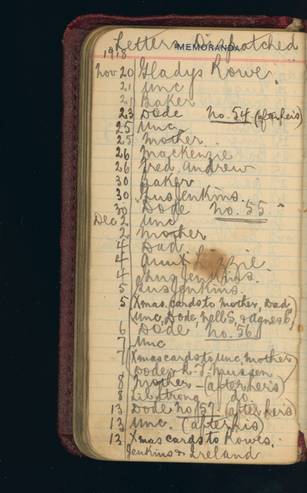 Letters Dispatched
MEMORANDA
1918
Nov 20 Gladys Rowe.
21 Unc
21 Baker
23 Dode No. 54 (after his)
25 Unc.
25 Mother.
26 Mackenzie
26 Fred Andrew
30 Baker
30 Gus Jenkins.
30 Dode No. 55
Dec 2 Unc
2 Mother
4 Dad
4 Aunt
4 Gus Jenkins.
5 Gus Jenkins.
5 (Xmas. cards to Mother, Dad
Unc, Dode, Nell S, & Agnes B)
6 Dode No. 56
7 Unc
7 (Xmas cards to Unc, Mother
Dode &
8 Mother - (after hers)
8 do.
13 Dode No 57 (after his)
13 Unc. (after his)
13 Xmas cards to Rowes,
Jenkins & Ireland